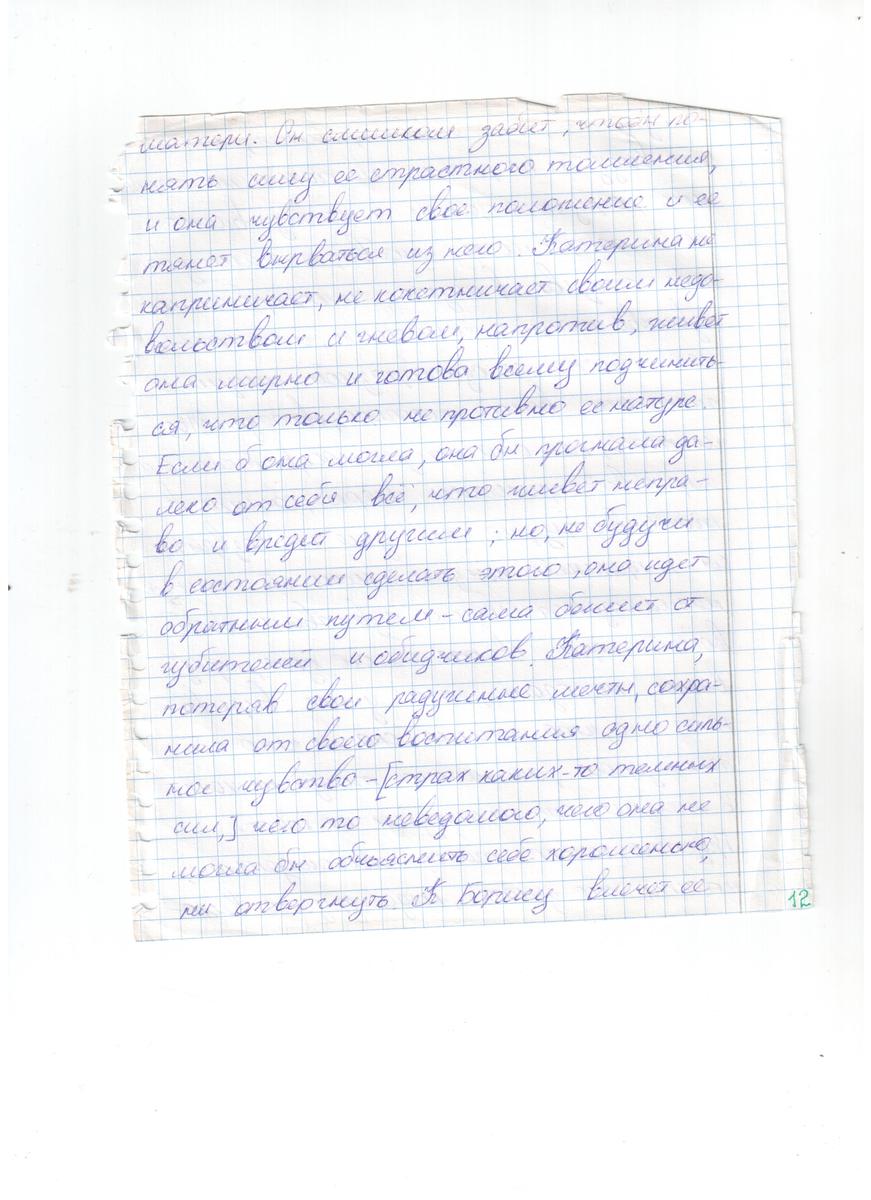 матери. Он слишком забит, чтобы по-
нять силу ее страстного томления,
и она чувствует свое положение и ее
тянет вырваться из него. Катерина не
капризничает, не кокетничает своим недо-
вольством и гневом, напротив, живет
она мирно и готова всему подчинить-
ся, что только не противно ее натуре.
Если б она могла, она бы прогнала да-
леко от себя всё, что живет непра-
во и вредит другим; но, не будучи
в состоянии сделать этого, она идет
обратным путем – сама бежит от
губителей и обидчиков. Катерина,
потеряв свои радужные мечты, сохра-
нила от своего воспитания одно силь-
ное чувство – [страх каких-то темных
сил,] чего то неведомого, чего она не
могла бы объяснить себе хорошенько,
ни отвергнуть. К Борису влечет ее
12